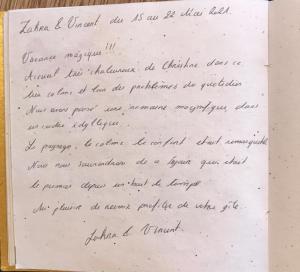 Zahra & Vincent du 15 au 22 Mai 2021.
Vacance magique!!!
Accueil très chaleureux de Christine dans ce
lieu calme et loin des problèmes du quotidien
Nous avons passé une semaine magnifique dans
un cadre idyllique.
Le paysage, le calme, le confort était remarquable
Nous nous souviendrons de ce séjour qui était
le premier depuis un bout de temps
Au plaisir de revenir profiter de votre gîte.
Zahra & Vincent.